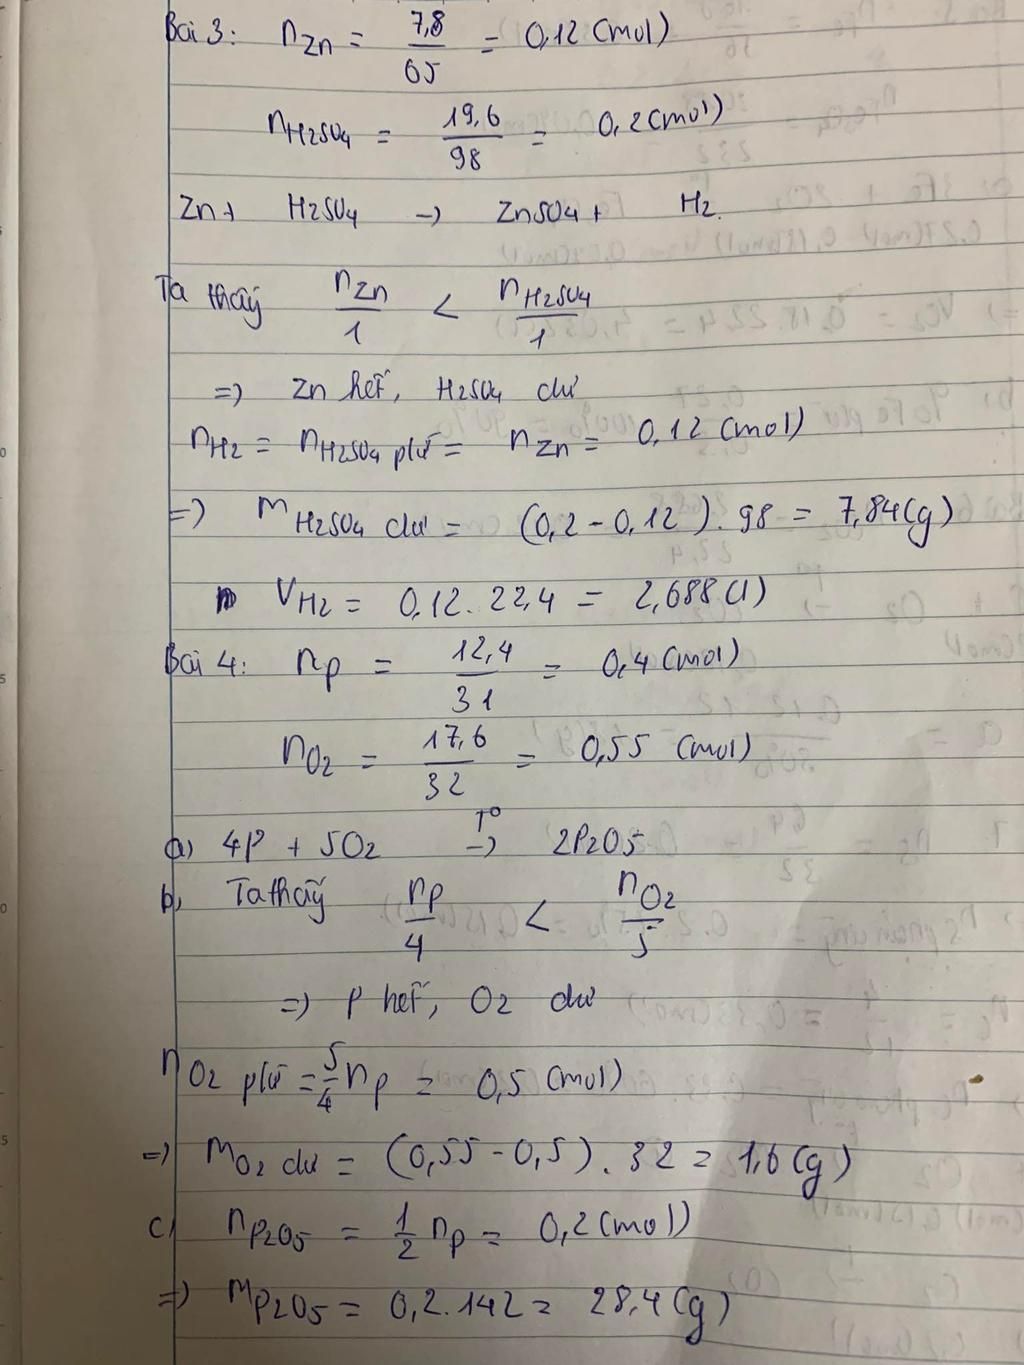 Bài 3: nZn = 7,8/65 = 0,12 (mol)
nH2SO4 = 19,6/98 = 0,2 (mol)
Zn + H2SO4 → ZnSO4 + H2
Ta thấy nZn/1 < nH2SO4/1
=> Zn hết, H2SO4 dư
nH2 = nH2SO4 pứ = nZn = 0,12 (mol)
=> mH2SO4 dư = (0,2 - 0,12) . 98 = 7,84 (g)
VH2 = 0,12 . 22,4 = 2,688 (l)
Bài 4: np = 12,4/31 = 0,4 (mol)
nO2 = 17,6/32 = 0,55 (mol)
a) 4P + 5O2 →(T°) 2P2O5
b, Ta thấy np/4 < nO2/5
=> P hết, O2 dư
nO2 pứ = 5/4 np = 0,5 (mol)
=> mO2 dư = (0,55 - 0,5) . 32 = 1,6 (g)
c) nP2O5 = 1/2 np = 0,2 (mol)
=> mP2O5 = 0,2 . 142 = 28,4 (g)